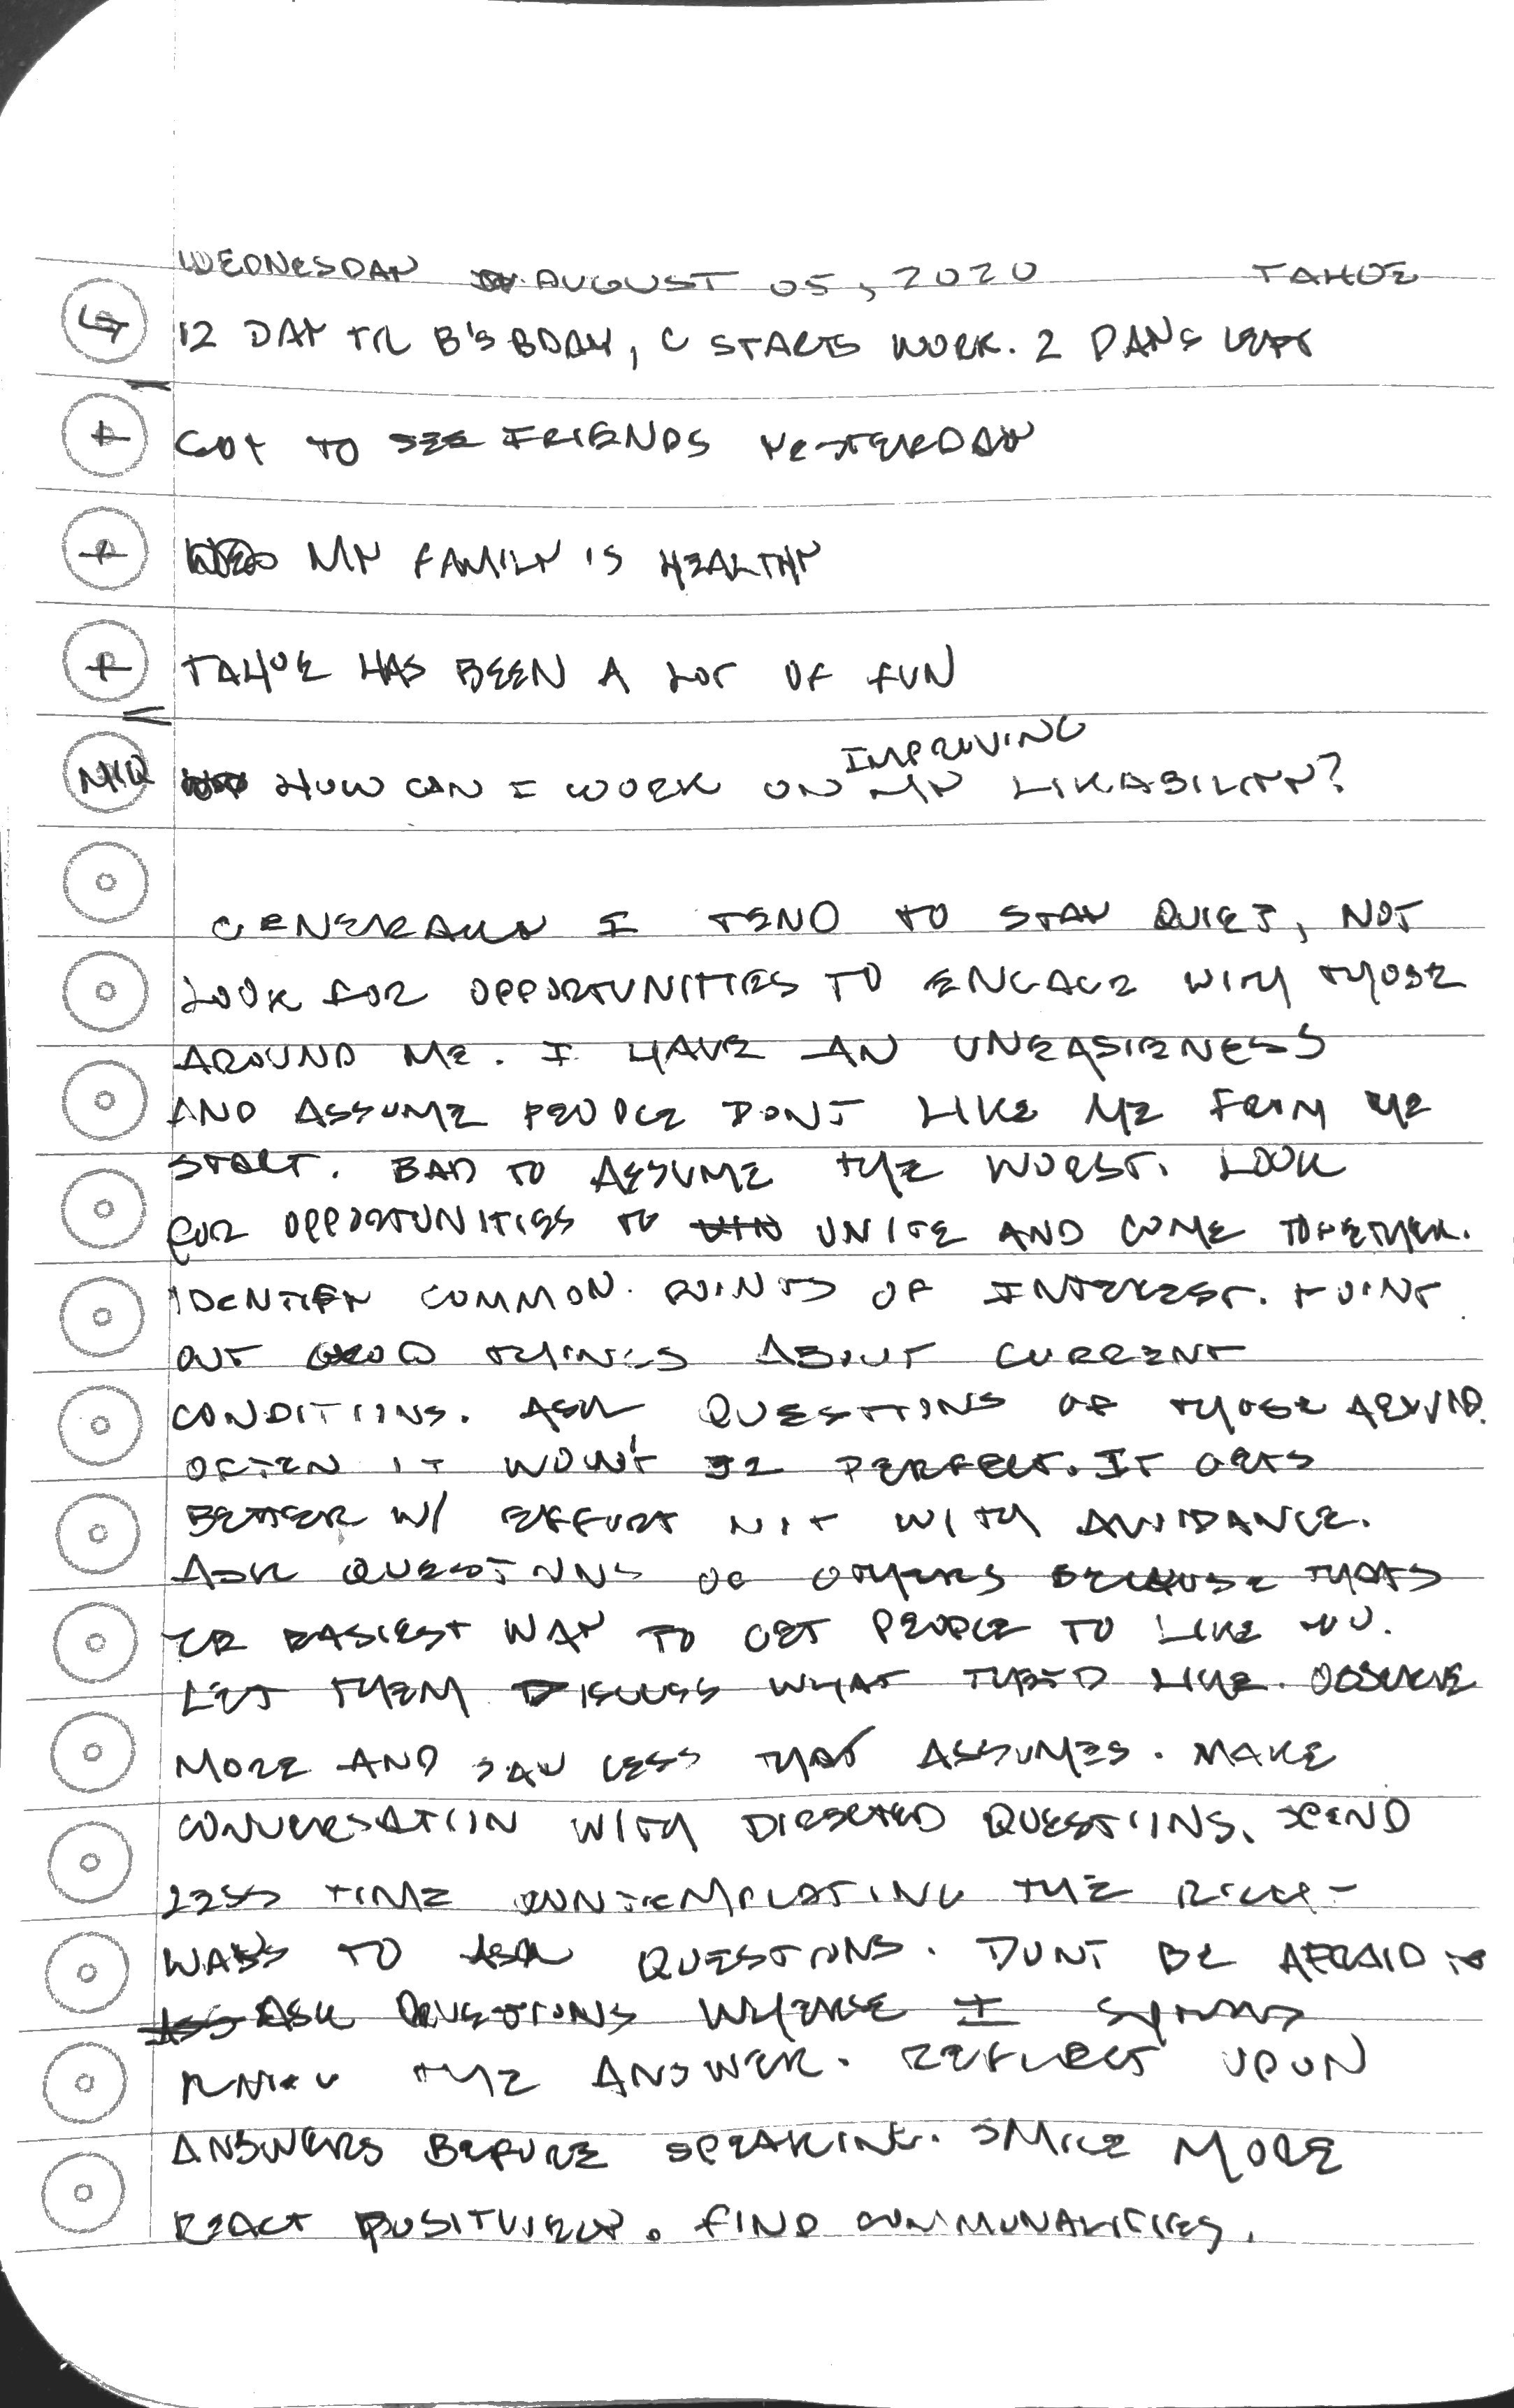 WEDNESDAY AUGUST 05, 2020 TAHOE
12 DAY TIL B'S BDAY, C STARTS WORK. 2 DAYS LEFT
+ GOT TO SEE FRIENDS YESTERDAY
+ MY FAMILY IS HEALTHY
+ TAHOE HAS BEEN A LOT OF FUN
IMPROVING
HOW CAN I WORK ON MY LIKABILITY?
GENERALLY I TEND TO STAY QUIET, NOT
LOOK FOR OPPORTUNITIES TO ENGAGE WITH THOSE
AROUND ME. I HAVE AN UNEASIENESS
AND ASSUME PEOPLE DONT LIKE ME FROM THE
START. BAD TO ASSUME THE WORST. LOOK
FOR OPPORTUNITIES TO UNITE AND COME TOGETHER.
IDENTIFY COMMON POINTS OF INTEREST. POINT
OUT GOOD THINGS ABOUT CURRENT
CONDITIONS. ASK QUESTIONS OF THOSE AROUND.
OFTEN IT WON'T BE PERFECT. IT GETS
BETTER W/ EFFORT NOT WITH AVOIDANCE.
ASK QUESTIONS OF OTHERS BECAUSE THATS
EASIEST WAY TO GET PEOPLE TO LIKE YOU.
LET THEM DISCUSS WHAT THEY'D LIKE. OBSERVE
MORE AND SAY LESS THAT ASSUMES. MAKE
CONVERSATION WITH DIRECTED QUESTIONS. SPEND
LESS TIME CONTEMPLATING THE RIGHT
WAYS TO ASK QUESTIONS. DONT BE AFRAID TO
ASK QUESTIONS WHERE I
KNOW THE ANSWER. REFLECT UPON
ANSWERS BEFORE SPEAKING. SMILE MORE
REACT POSITIVELY. FIND COMMUNALITIES.